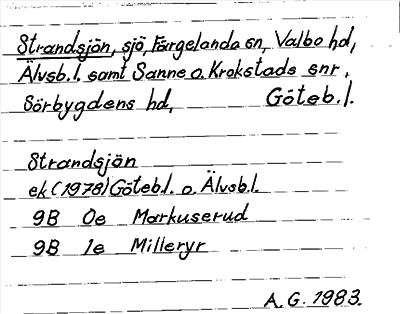 Strandsjön, sjö, Färgelanda sn, Valbo hd,
Älvsb.l. samt Sanne o. Krokstads snr,
Sörbygdens hd, Göteb.l.
Strandsjön
ek (1978) Göteb.l. o Älvsb.l.
9B 0e Markuserud
9B 1e Milleryr
A.G. 1983.